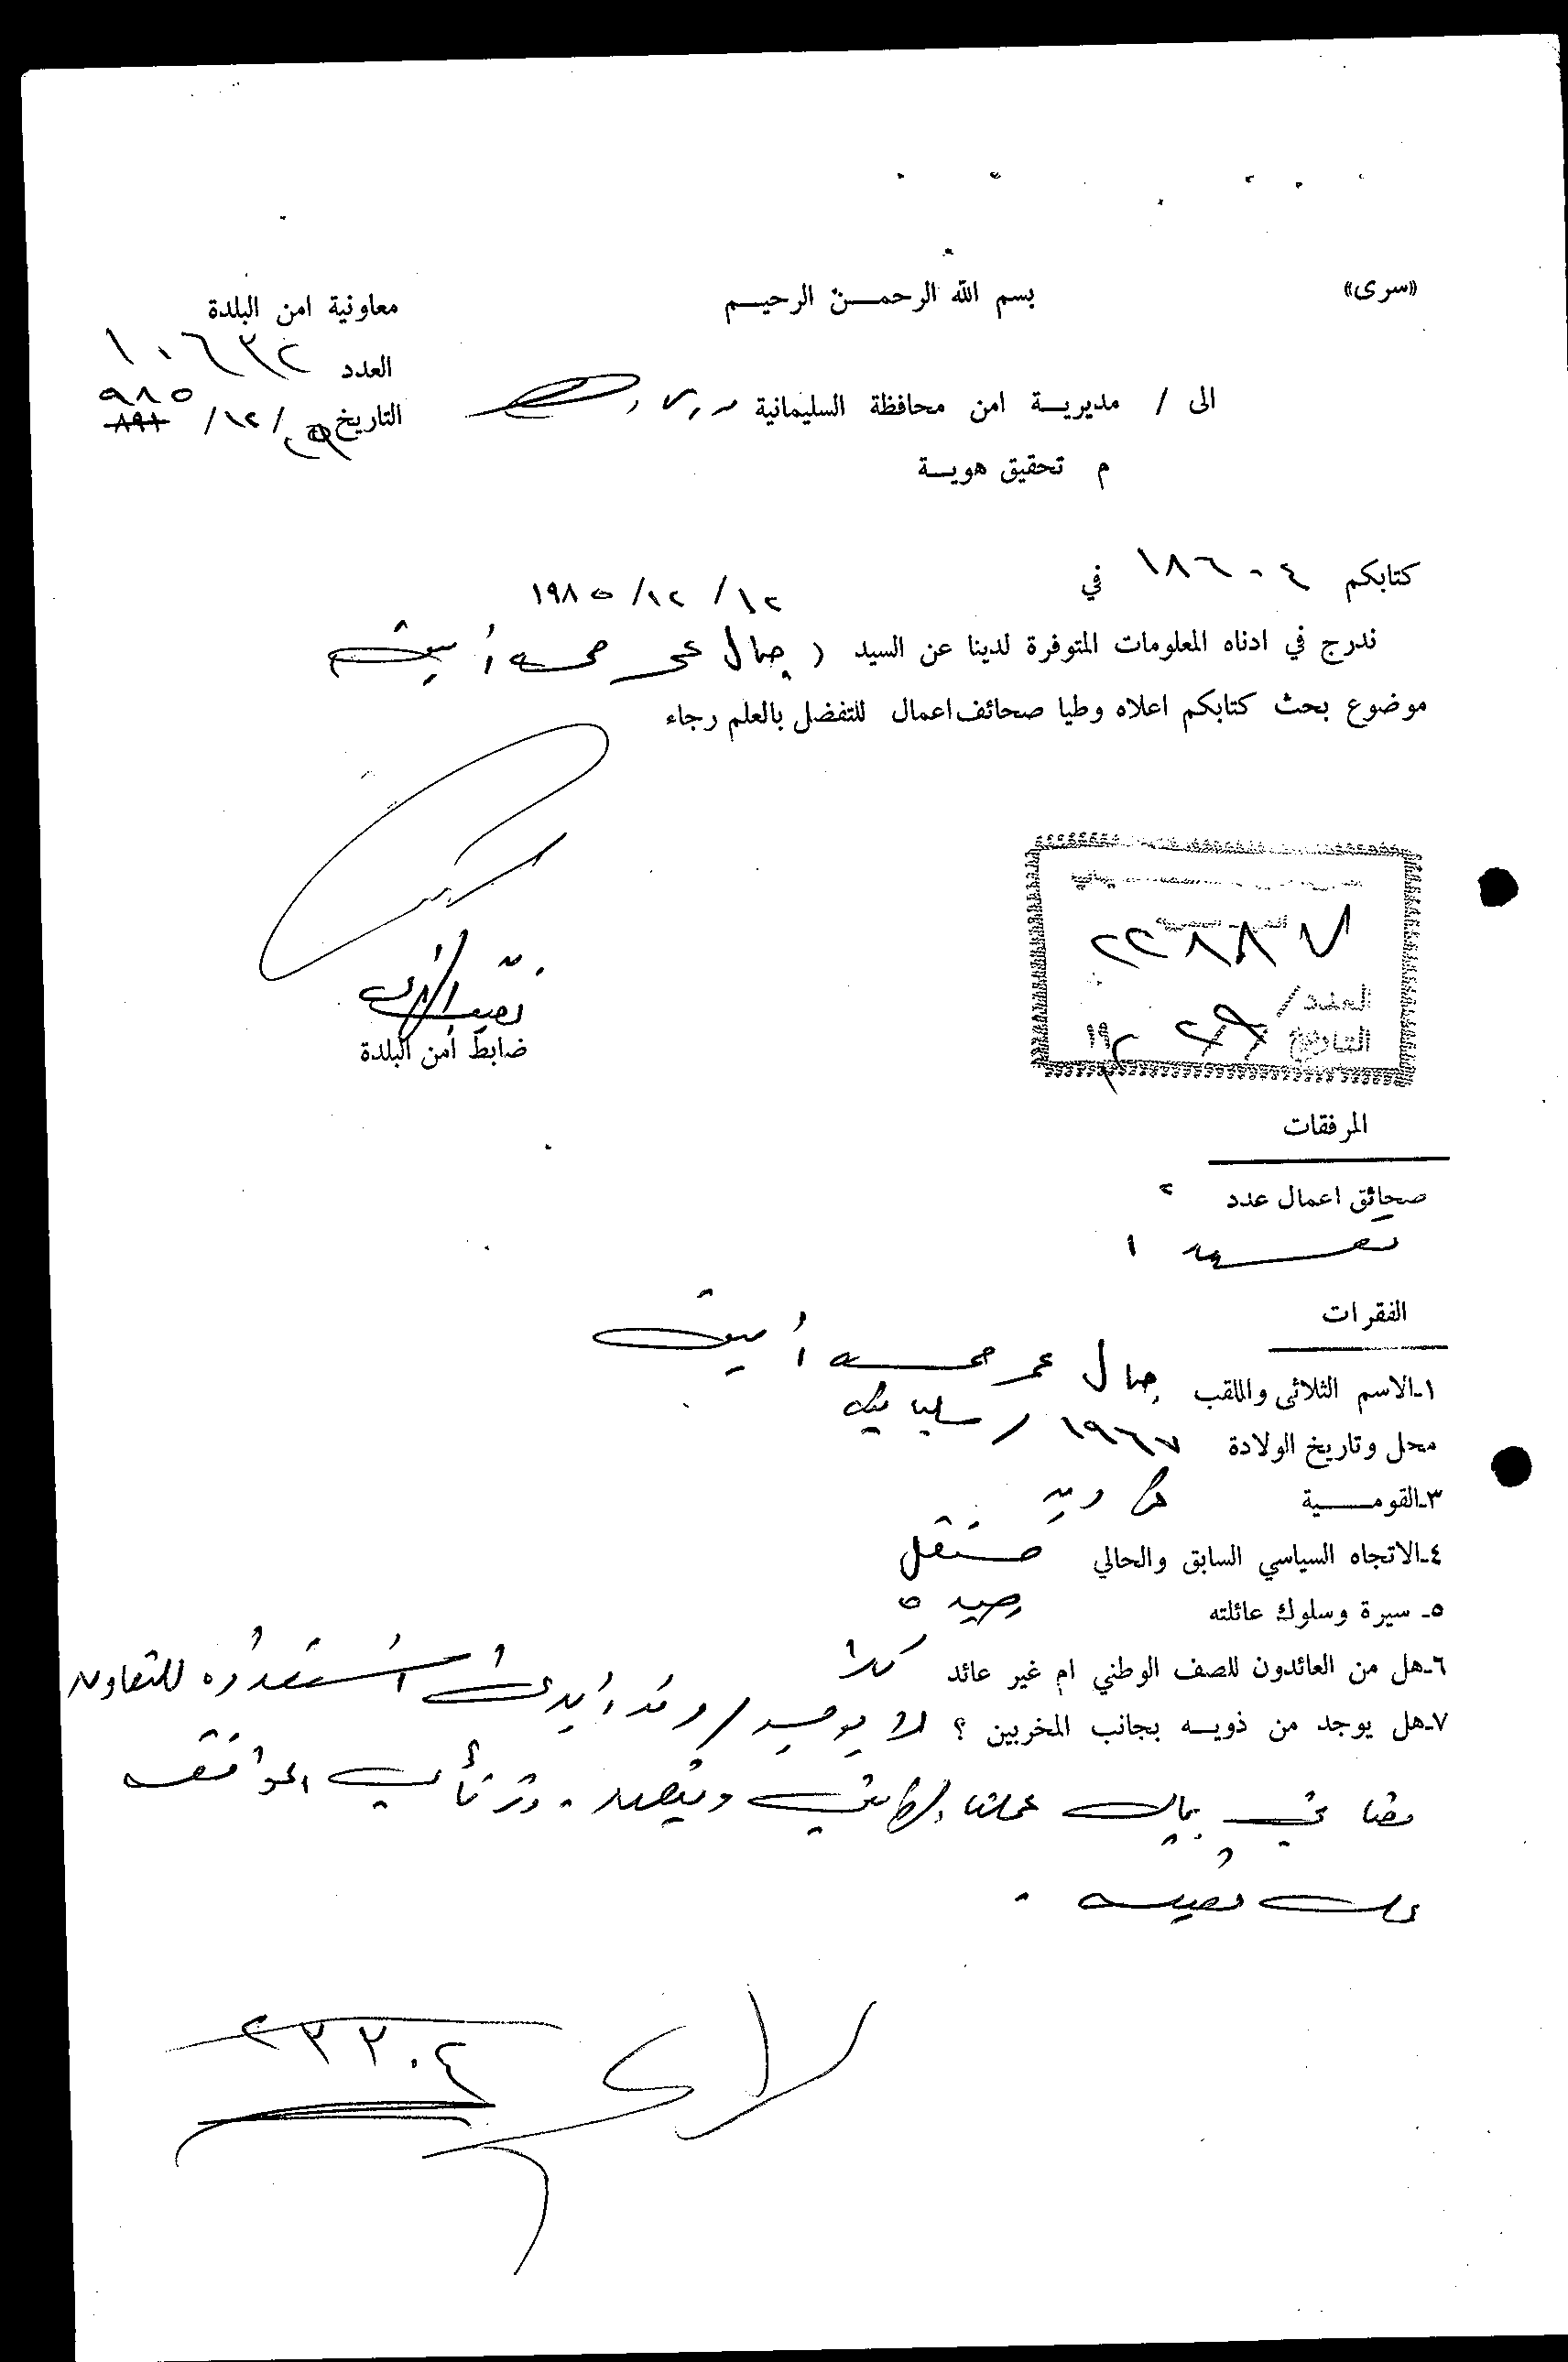 «سرى»
بسم الله الرحمـــن الرحيــم
معاونية امن البلدة
العدد ١٠٦٣٢
التاريخ ٢٩/١٢/ ٩٨٥
الى / مديريــة امن محافظة السليمانية
م تحقيق هويــة
كتابكم ١٨٦٠٤ في ١٢/١٢/١٩٨٥
ندرج في ادناه المعلومات المتوفرة لدينا عن السيد ( جمال عمر محمد أمين
موضوع بحث كتابكم اعلاه وطيا صحائف اعمال للتفضل بالعلم رجاء
نقيب الأمن
ضابط أمن البلدة
٢٢٨٨٧
العدد/
التاريخ ٢٩ / ١٢ ١٩
المرفقات
صحائق اعمال عدد ٢
تعهد ١
الفقرات
١ـالاسم الثلاثى واللقب جمال عمر محمد أمين
محل وتاريخ الولادة ١٩٦٧ / سليمانية
٣ـالقومـــــية كردية
٤ـالاتجاه السياسي السابق والحالي مستقل
٥ـ سيرة وسلوك عائلته جيدة
٦ـهل من العائدون للصف الوطني ام غير عائد كلا
٧ـهل يوجد من ذويــه بجانب المخربين ؟ لا يوجد / وقد أبدى استعداده للتعاون
معنا في مجال عملنا الأمني وتعهد . ونرتأي الموافقة
على تعيينه .
٢٣٢٠٤